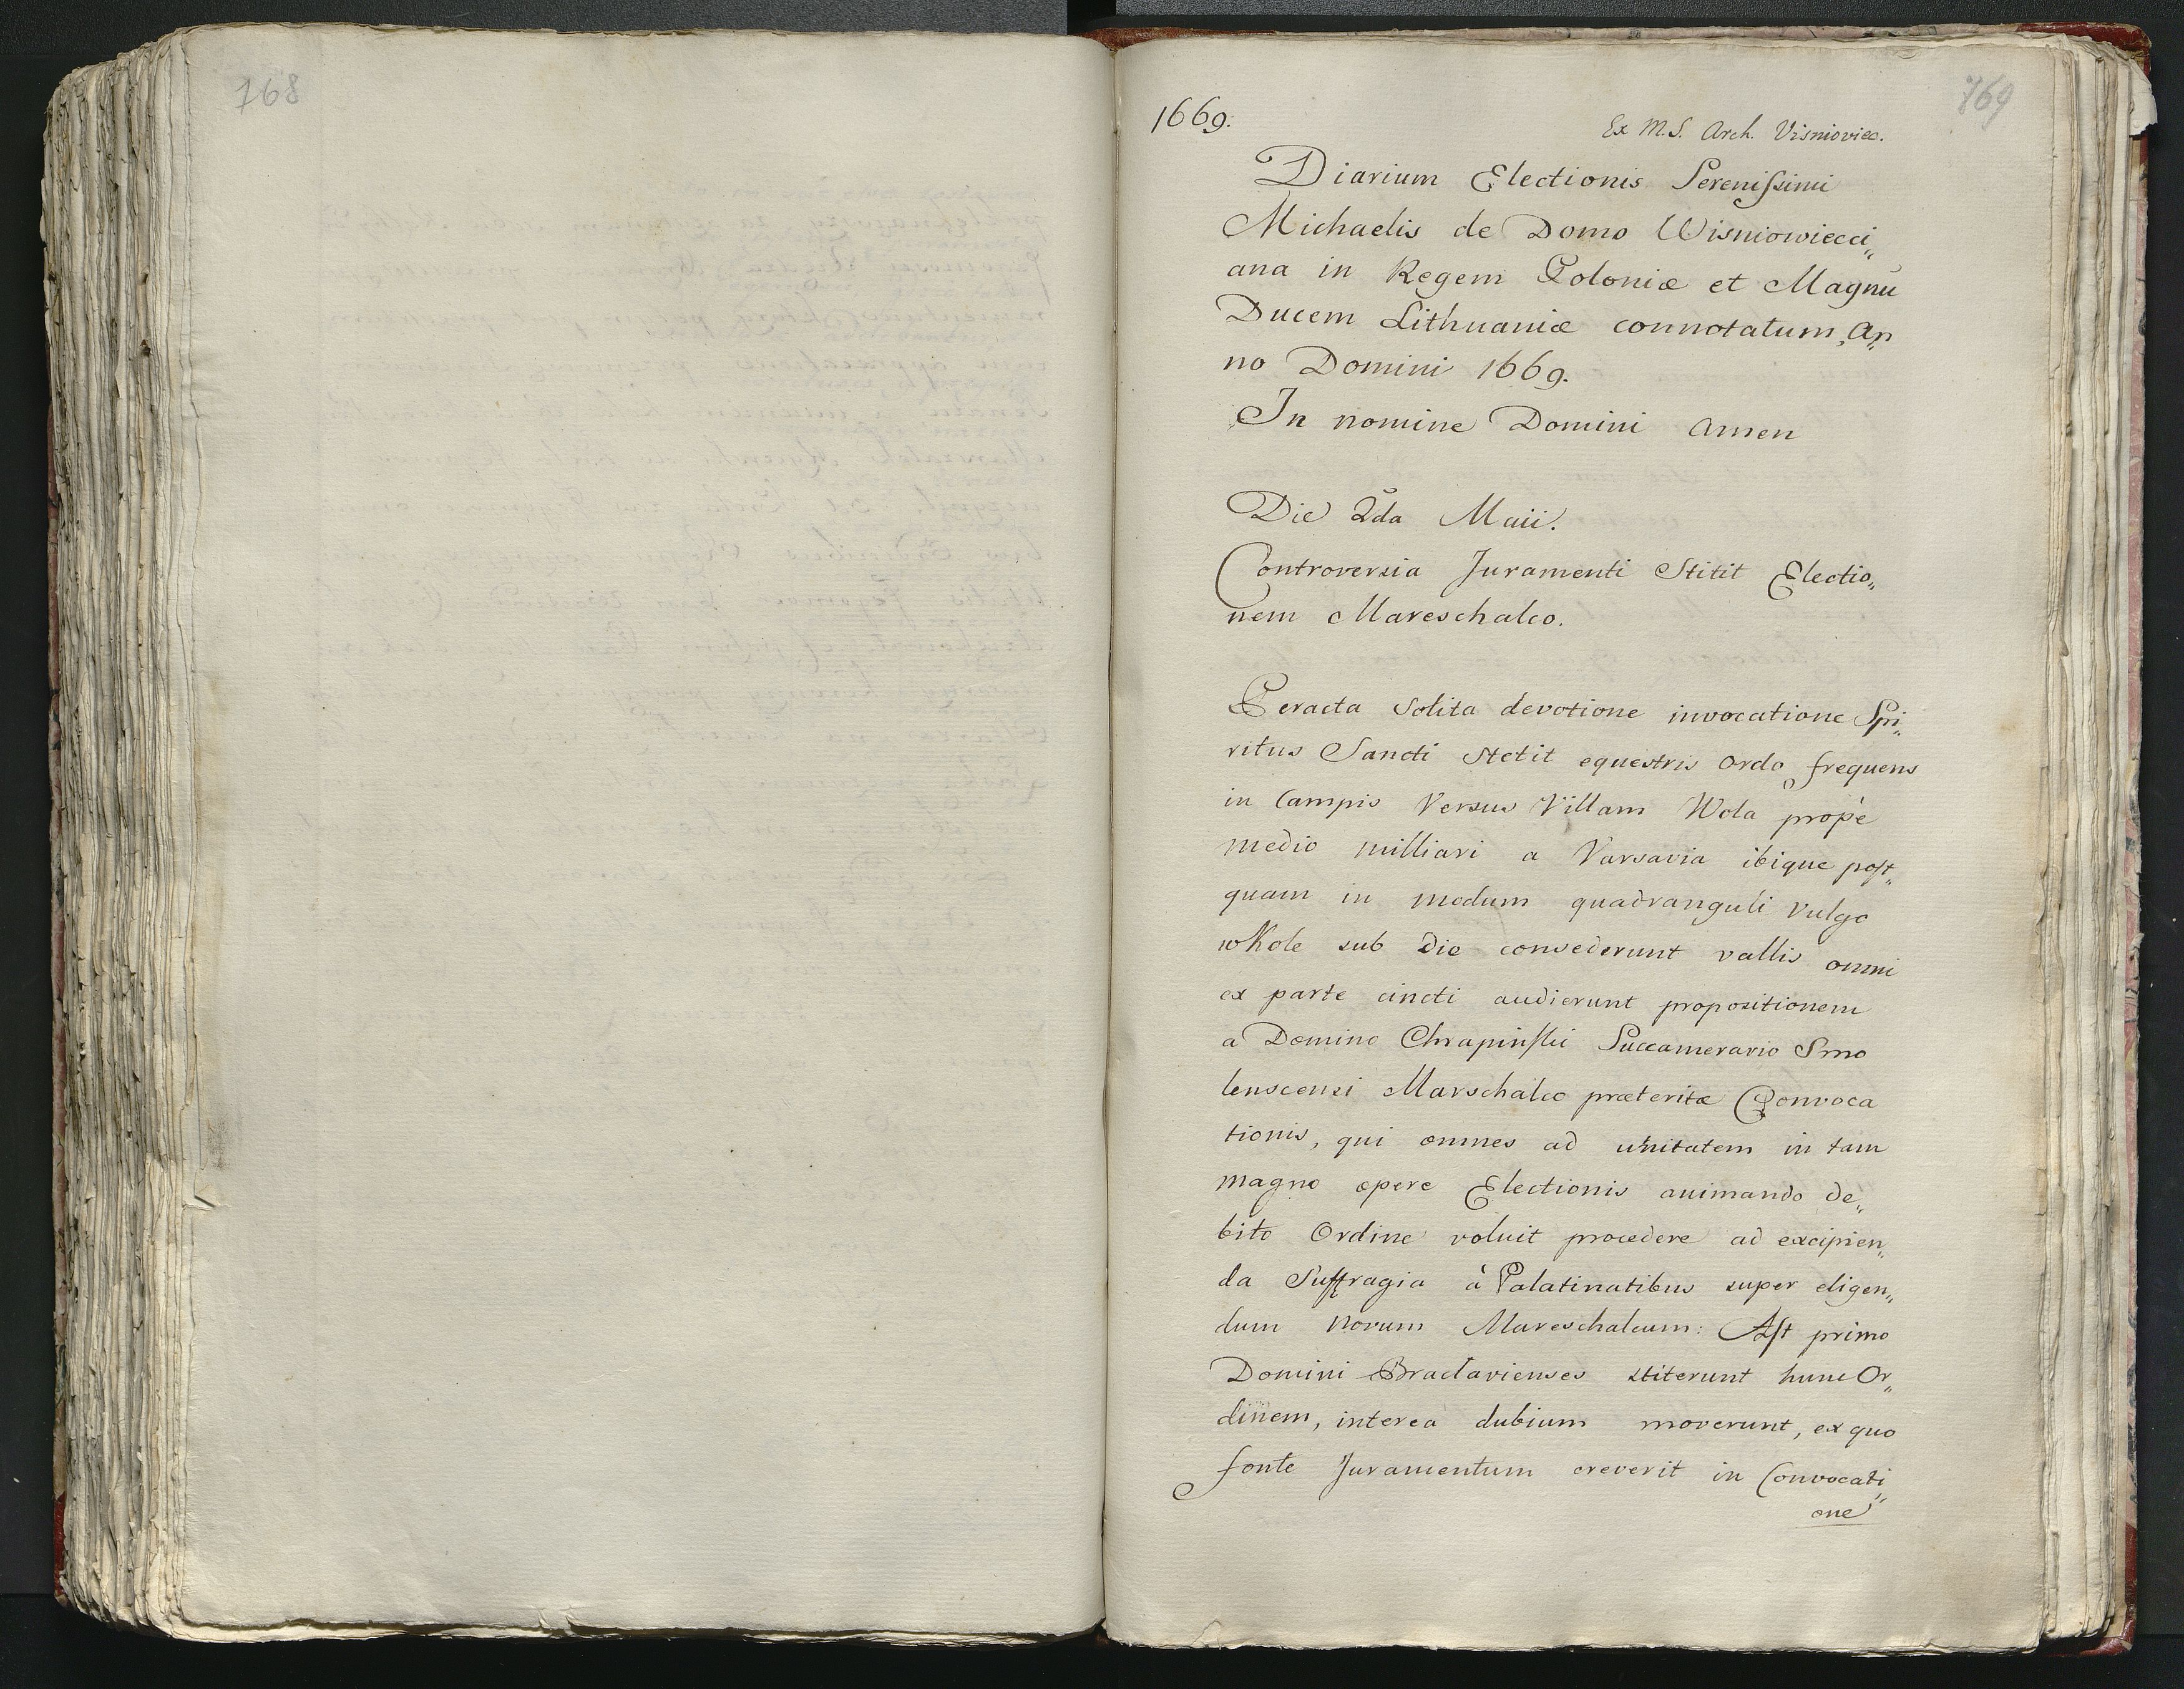 768
769
1669.
Ex M.S. Arch. Visnioviec.
Diarium Electionis Serenissimi
Michaelis de Domo Wisniowieci„
ana in Regem Poloniæ et Magnū
Ducem Lithuaniæ connotatum, An„
no Domini 1669.
In nomine Domini Amen
Die 2da Maii.
Controversia Juramenti Stitit Electio„
nem Mareschalco.
Peracta Solita devotione invocatione Spi„
ritus Sancti Stetit equestris Ordo frequens
in Campis Versus Villam Wola propè
medio milliari a Varsavia ibique post„
quam in modum quadranguli vulgo
w Kole sub die consederunt vallis omni
ex parte cincti audierunt propositionem
a Domino Chrapinski Succamerario Smo
lenscensi Marschalco præteritæ Convoca
tionis, qui omnes ad unitatem in tam
magno opere Electionis animando de„
bito Ordine voluit procedere ad excipien„
da Suffragia à Palatinatibus super eligen„
dum novum Mareschalcum: Ast primo
Domini Braclavienses stiterunt hunc Or„
dinem, interea dubium moverunt, ex quo
fonte Juramentum creverit in Convocati„
one